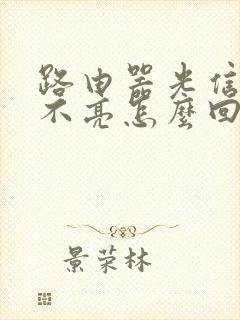 路由器光信
不亮怎麼回
景荣林